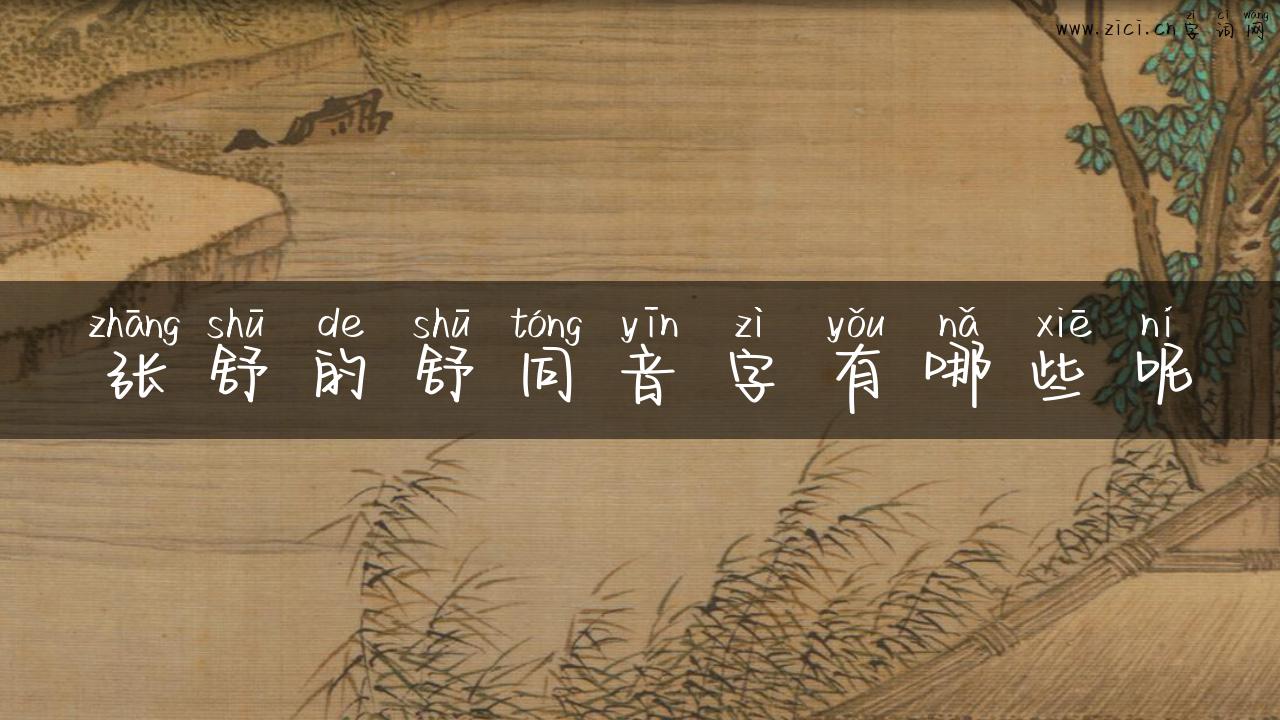 zì cí wǎng
www.zici.cn字词网
zhāng shū de shū tóng yīn zì yǒu nǎ xiē ní
张舒的舒同音字有哪些呢